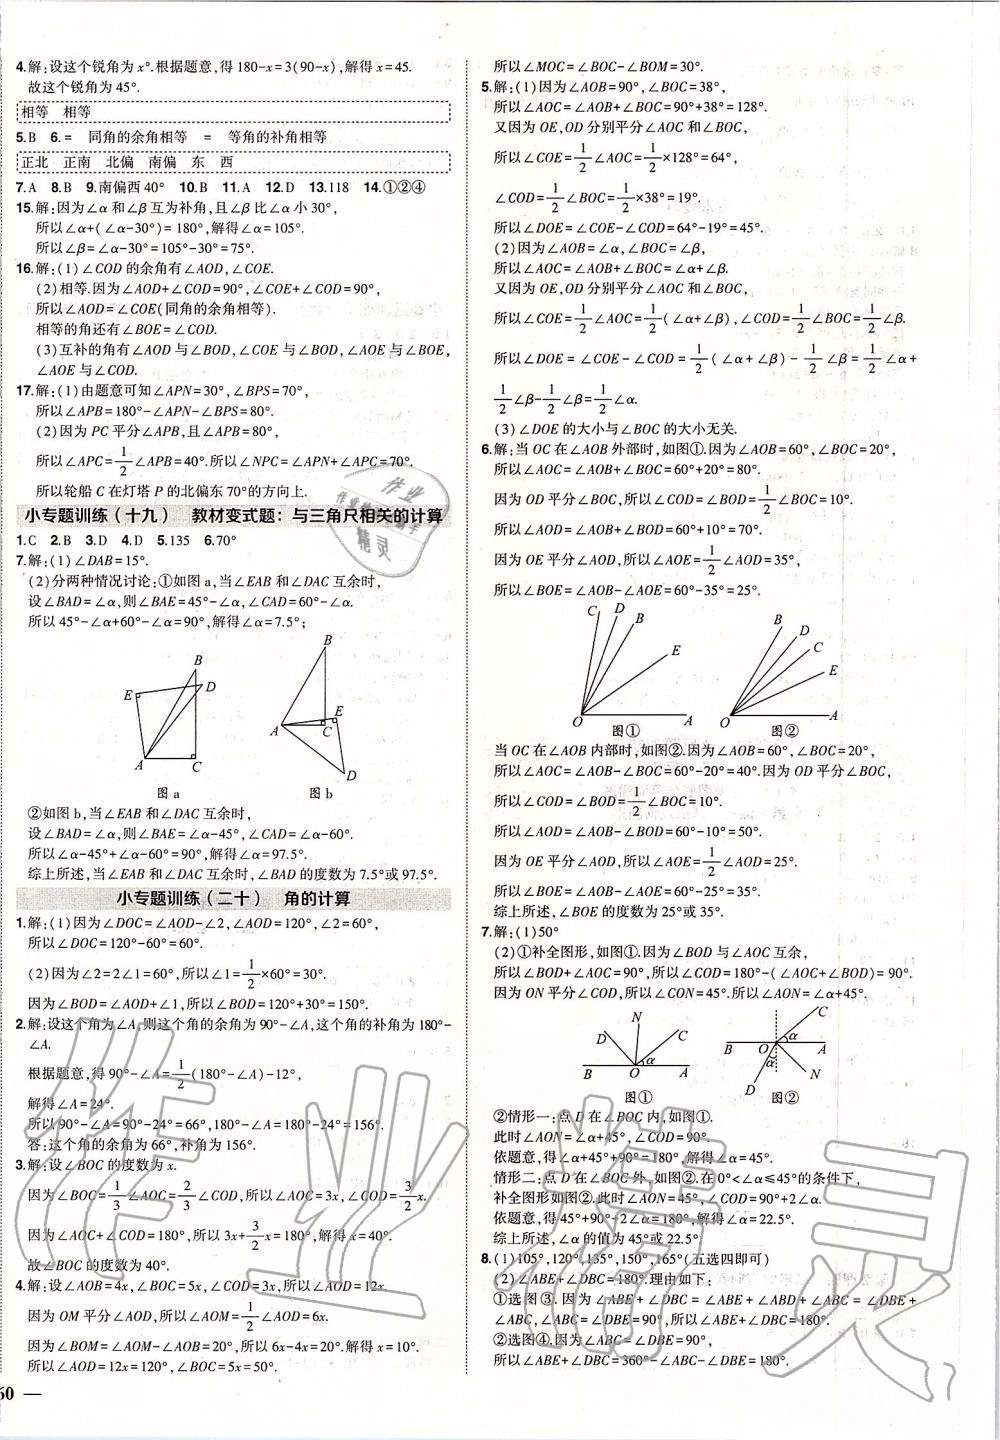 4.解:设这个锐角为x°.根据题意,得180-x=3(90-x),解得x=45.
故这个锐角为45°.
相等 相等
5.B 6.= 同角的余角相等 = 等角的补角相等
正北 正南 北偏 南偏 东 西
7.A 8.B 9.南偏西40° 10.B 11.A 12.D 13.118 14.①②④
15.解:因为∠α和∠β互为补角,且∠β比∠α小30°,
所以∠α+(∠α-30°)=180°,解得∠α=105°.
所以∠β=∠α-30°=105°-30°=75°.
16.解:(1)∠COD的余角有∠AOD,∠COE.
(2)相等.因为∠AOD+∠COD=90°,∠COE+∠COD=90°,
所以∠AOD=∠COE(同角的余角相等).
相等的角还有∠BOE=∠COD.
(3)互补的角有∠AOD与∠BOD,∠COE与∠BOD,∠AOE与∠BOE,
∠AOE与∠COD.
17.解:(1)由题意可知∠APN=30°,∠BPS=70°,
所以∠APB=180°-∠APN-∠BPS=80°.
(2)因为PC平分∠APB,∠APB=80°,
所以∠APC=1/2∠APB=40°.所以∠NPC=∠APN+∠APC=70°.
所以轮船C在灯塔P的北偏东70°的方向上.
小专题训练(十九) 教材变式题:与三角尺相关的计算
1.C 2.B 3.D 4.D 5.135 6.70°
7.解:(1)∠DAB=15°.
(2)分两种情况讨论:①如图a,当∠EAB和∠DAC互余时,
设∠BAD=∠α,则∠BAE=45°-∠α,∠CAD=60°-∠α.
所以45°-∠α+60°-∠α=90°,解得∠α=7.5°;
B
D
E
A
C
图a
B
E
A
C
D
图b
②如图b,当∠EAB和∠DAC互余时,
设∠BAD=∠α,则∠BAE=∠α-45°,∠CAD=∠α-60°.
所以∠α-45°+∠α-60°=90°,解得∠α=97.5°.
综上所述,当∠EAB和∠DAC互余时,∠BAD的度数为7.5°或97.5°.
小专题训练(二十) 角的计算
1.解:(1)因为∠DOC=∠AOD-∠2,∠AOD=120°,∠2=60°,
所以∠DOC=120°-60°=60°.
(2)因为∠2=2∠1=60°,所以∠1=1/2×60°=30°.
因为∠BOD=∠AOD+∠1,所以∠BOD=120°+30°=150°.
2.解:设这个角为∠A,则这个角的余角为90°-∠A,这个角的补角为180°-
∠A.
根据题意,得90°-∠A=1/2(180°-∠A)-12°,
解得∠A=24°.
所以90°-∠A=90°-24°=66°,180°-∠A=180°-24°=156°.
答:这个角的余角为66°,补角为156°.
3.解:设∠BOC的度数为x.
因为∠BOC=1/3∠AOC=2/3∠COD,所以∠AOC=3x,∠COD=3/2x.
因为∠AOC+∠COD=180°,所以3x+3/2x=180°,解得x=40°.
故∠BOC的度数为40°.
4.解:设∠AOB=4x,∠BOC=5x,∠COD=3x,所以∠AOD=12x.
因为OM平分∠AOD,所以∠AOM=1/2∠AOD=6x.
因为∠BOM=∠AOM-∠AOB=20°,所以6x-4x=20°.解得x=10°.
所以∠AOD=12x=120°,∠BOC=5x=50°.
60 —
所以∠MOC=∠BOC-∠BOM=30°.
5.解:(1)因为∠AOB=90°,∠BOC=38°,
所以∠AOC=∠AOB+∠BOC=90°+38°=128°.
又因为OE,OD分别平分∠AOC和∠BOC,
所以∠COE=1/2∠AOC=1/2×128°=64°,
∠COD=1/2∠BOC=1/2×38°=19°.
所以∠DOE=∠COE-∠COD=64°-19°=45°.
(2)因为∠AOB=∠α,∠BOC=∠β,
所以∠AOC=∠AOB+∠BOC=∠α+∠β.
又因为OE,OD分别平分∠AOC和∠BOC,
所以∠COE=1/2∠AOC=1/2(∠α+∠β),∠COD=1/2∠BOC=1/2∠β.
所以∠DOE=∠COE-∠COD=1/2(∠α+∠β)-1/2∠β=1/2∠α+
1/2∠β-1/2∠β=1/2∠α.
(3)∠DOE的大小与∠BOC的大小无关.
6.解:当OC在∠AOB外部时,如图①.因为∠AOB=60°,∠BOC=20°,
所以∠AOC=∠AOB+∠BOC=60°+20°=80°.
因为OD平分∠BOC,所以∠COD=∠BOD=1/2∠BOC=10°.
所以∠AOD=∠AOB+∠BOD=60°+10°=70°.
因为OE平分∠AOD,所以∠AOE=1/2∠AOD=35°,
所以∠BOE=∠AOB-∠AOE=60°-35°=25°.
C
D
B
E
O
A
图①
B
D
C
E
O
A
图②
当OC在∠AOB内部时,如图②.因为∠AOB=60°,∠BOC=20°,
所以∠AOC=∠AOB-∠BOC=60°-20°=40°.因为OD平分∠BOC,
所以∠COD=∠BOD=1/2∠BOC=10°.
所以∠AOD=∠AOB-∠BOD=60°-10°=50°.
因为OE平分∠AOD,所以∠AOE=1/2∠AOD=25°.
所以∠BOE=∠AOB-∠AOE=60°-25°=35°.
综上所述,∠BOE的度数为25°或35°.
7.解:(1)50°
(2)①补全图形,如图①.因为∠BOD与∠AOC互余,
所以∠BOD+∠AOC=90°,所以∠COD=180°-(∠AOC+∠BOD)=90°.
因为ON平分∠COD,所以∠CON=45°.所以∠AON=∠α+45°.
N
D
C
α
B
O
A
图①
C
B
O
α
A
α
D
N
图②
②情形一:点D在∠BOC内,如图①.
此时∠AON=∠α+45°,∠COD=90°.
依题意,得∠α+45°+90°=180°,解得∠α=45°.
情形二:点D在∠BOC外,如图②.在0°<∠α≤45°的条件下,
补全图形如图②.此时∠AON=45°,∠COD=90°+2∠α.
依题意,得45°+90°+2∠α=180°,解得∠α=22.5°.
综上所述,∠α的值为45°或22.5°.
8.(1)105°,120°,135°,150°,165°(五选四即可)
(2)∠ABE+∠DBC=180°.理由如下:
①选图③.因为∠ABE+∠DBC=∠ABE+∠ABD+∠ABC=∠DBE+
∠ABC,∠ABC=∠DBE=90°,所以∠ABE+∠DBC=180°.
②选图④.因为∠ABC=∠DBE=90°,
所以∠ABE+∠DBC=360°-∠ABC-∠DBE=180°.
作业精灵